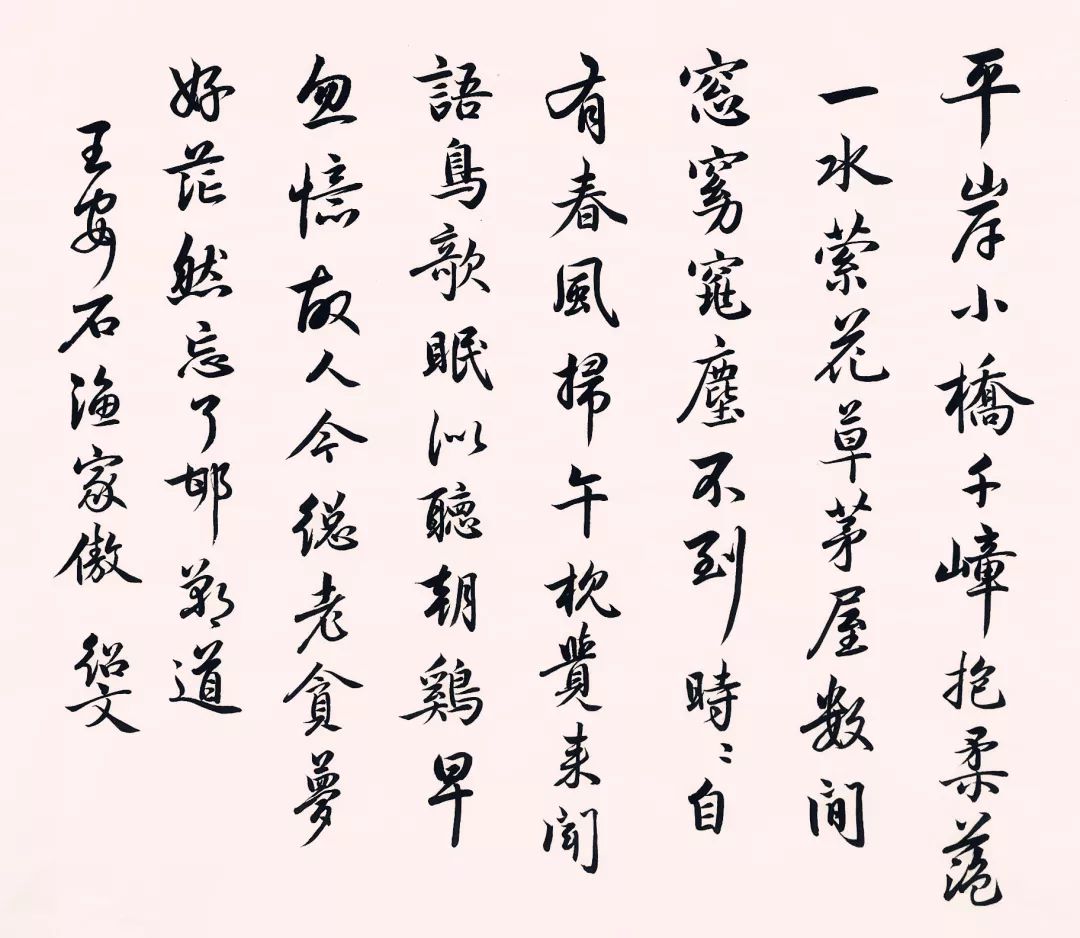 平岸小橋千嶂抱柔藍
一水萦花草茅屋数间
窓窈窕塵不到時〻自
有春風掃午枕覺来聞
語鳥欹眠似聽朝鷄早
忽憶故人今總老貪夢
好茫然忘了邯鄲道
王安石漁家傲 紹文